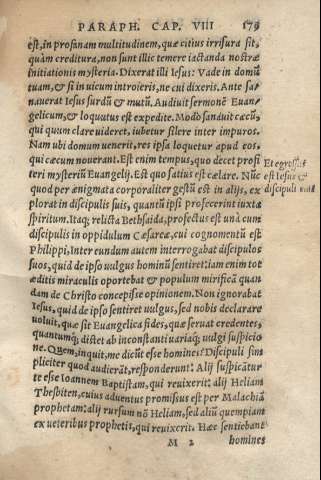 PARAPH. CAP. VIII 179
est, in profanam multitudinem, quæ citius irrisura sit,
quàm creditura, non sunt illic temere iactanda nostræ
initiationis mysteria. Dixerat illi Iesus: Vade in domũ
tuam, & si in vicum introieris, ne cui dixeris. Ante sa-
nauerat Iesus surdũ & mutũ. Audiuit sermonẽ Euan-
gelicum, & loquutus est expedite. Modò sanauit cæcũ,
qui quum clare uideret, iubetur silere inter impuros.
Nam ubi domum uenerit, res ipsa loquetur apud eos,
qui cæcum nouerant. Est enim tempus, quo decet profi
teri mysteriũ Euangelij. Est quo satius est cælare. Nũc
Et egressus
est Iesus &
discipuli
quod per ænigmata corporaliter gestũ est in alijs, ex
plorat in discipulis suis, quantũ ipsi profecerint iuxta
spiritum. Itaq; relicta Bethsaida, profectus est und cum
discipulis in oppidulum Cæsareæ, cui cognomentũ est
Philippi, Inter eundum autem interrogabat discipulos
suos, quid de ipso uulgus hominũ sentiret: iam enim tot
æditis miraculis oportebat & populum mirificã quan
dam de Christo concepisse opinionem. Non ignorabat
Iesus, quid de ipso sentiret uulgus, sed nobis declarare
uoluit, quæ sit Euangelica fides, quæ seruat credentes,
quantumq; dictet ab inconstanti uariaq; uulgi suspicio
ne. Quem, inquit, me dicũt esse homines? Discipuli sim
pliciter quod audierãt, responderunt: Alij suspicãtur
te esse Ioannem Baptistam, qui reuixerit: alij Heliam
Thesbiten, cuius aduentus promissus est per Malachiã
prophetam: alij rursum nõ Heliam, sed aliũ quempiam
ex ueteribus prophetis, qui reuixerit. Hæc sentiebant
M 2 homines